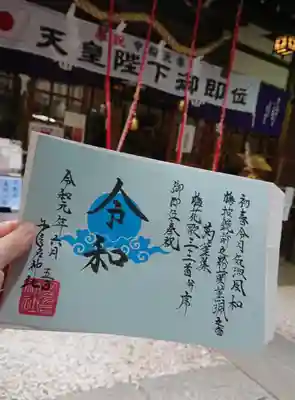 奉祝
天皇陛下御即位
初春令月氣淑風和
梅披鏡前之粉蘭薫珮後之香
萬葉集
梅花歌三十二首并序
御即位奉祝
令和
令和元年六月五日